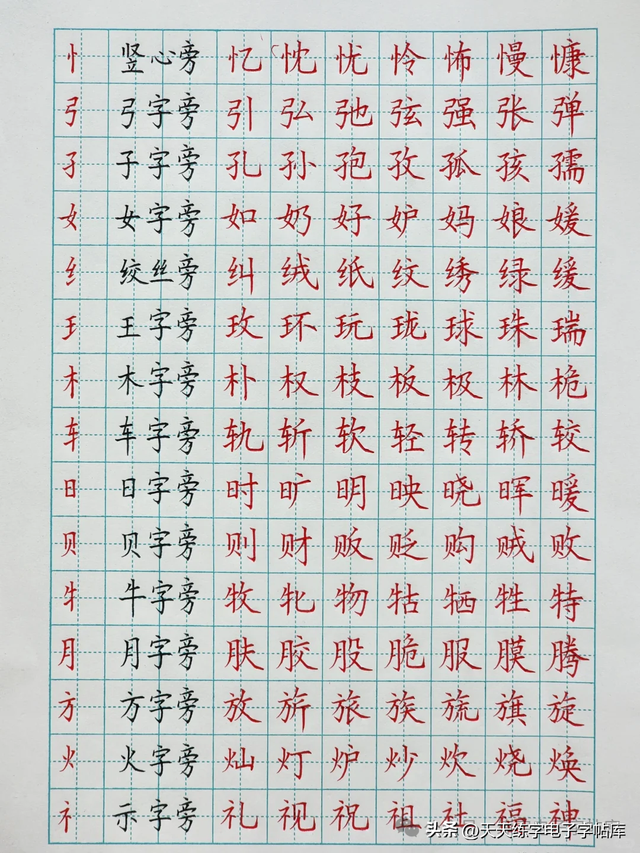 忄 竖心旁 忆 忱 忧 怜 怖 慢 慷
弓 弓字旁 引 弘 弛 弦 强 张 弹
孑 子字旁 孔 孙 孢 孜 孤 孩 孺
女 女字旁 如 奶 好 妒 妈 娘 媛
纟 绞丝旁 纠 绒 纸 纹 绣 绿 缓
王 王字旁 玫 环 玩 珑 球 珠 瑞
木 木字旁 朴 权 枝 板 极 林 桅
车 车字旁 轨 斩 软 轻 转 轿 较
日 日字旁 时 旷 明 映 晓 晖 暖
贝 贝字旁 则 财 贩 贬 购 贼 败
牜 牛字旁 牧 牝 物 牯 牺 牲 特
月 月字旁 肤 胶 股 脆 服 膜 腾
方 方字旁 放 旂 旅 族 旒 旗 旋
火 火字旁 灿 灯 炉 炒 炊 烧 焕
礻 示字旁 礼 视 祝 祖 社 福 神
头条 @天天练字电子字帖库